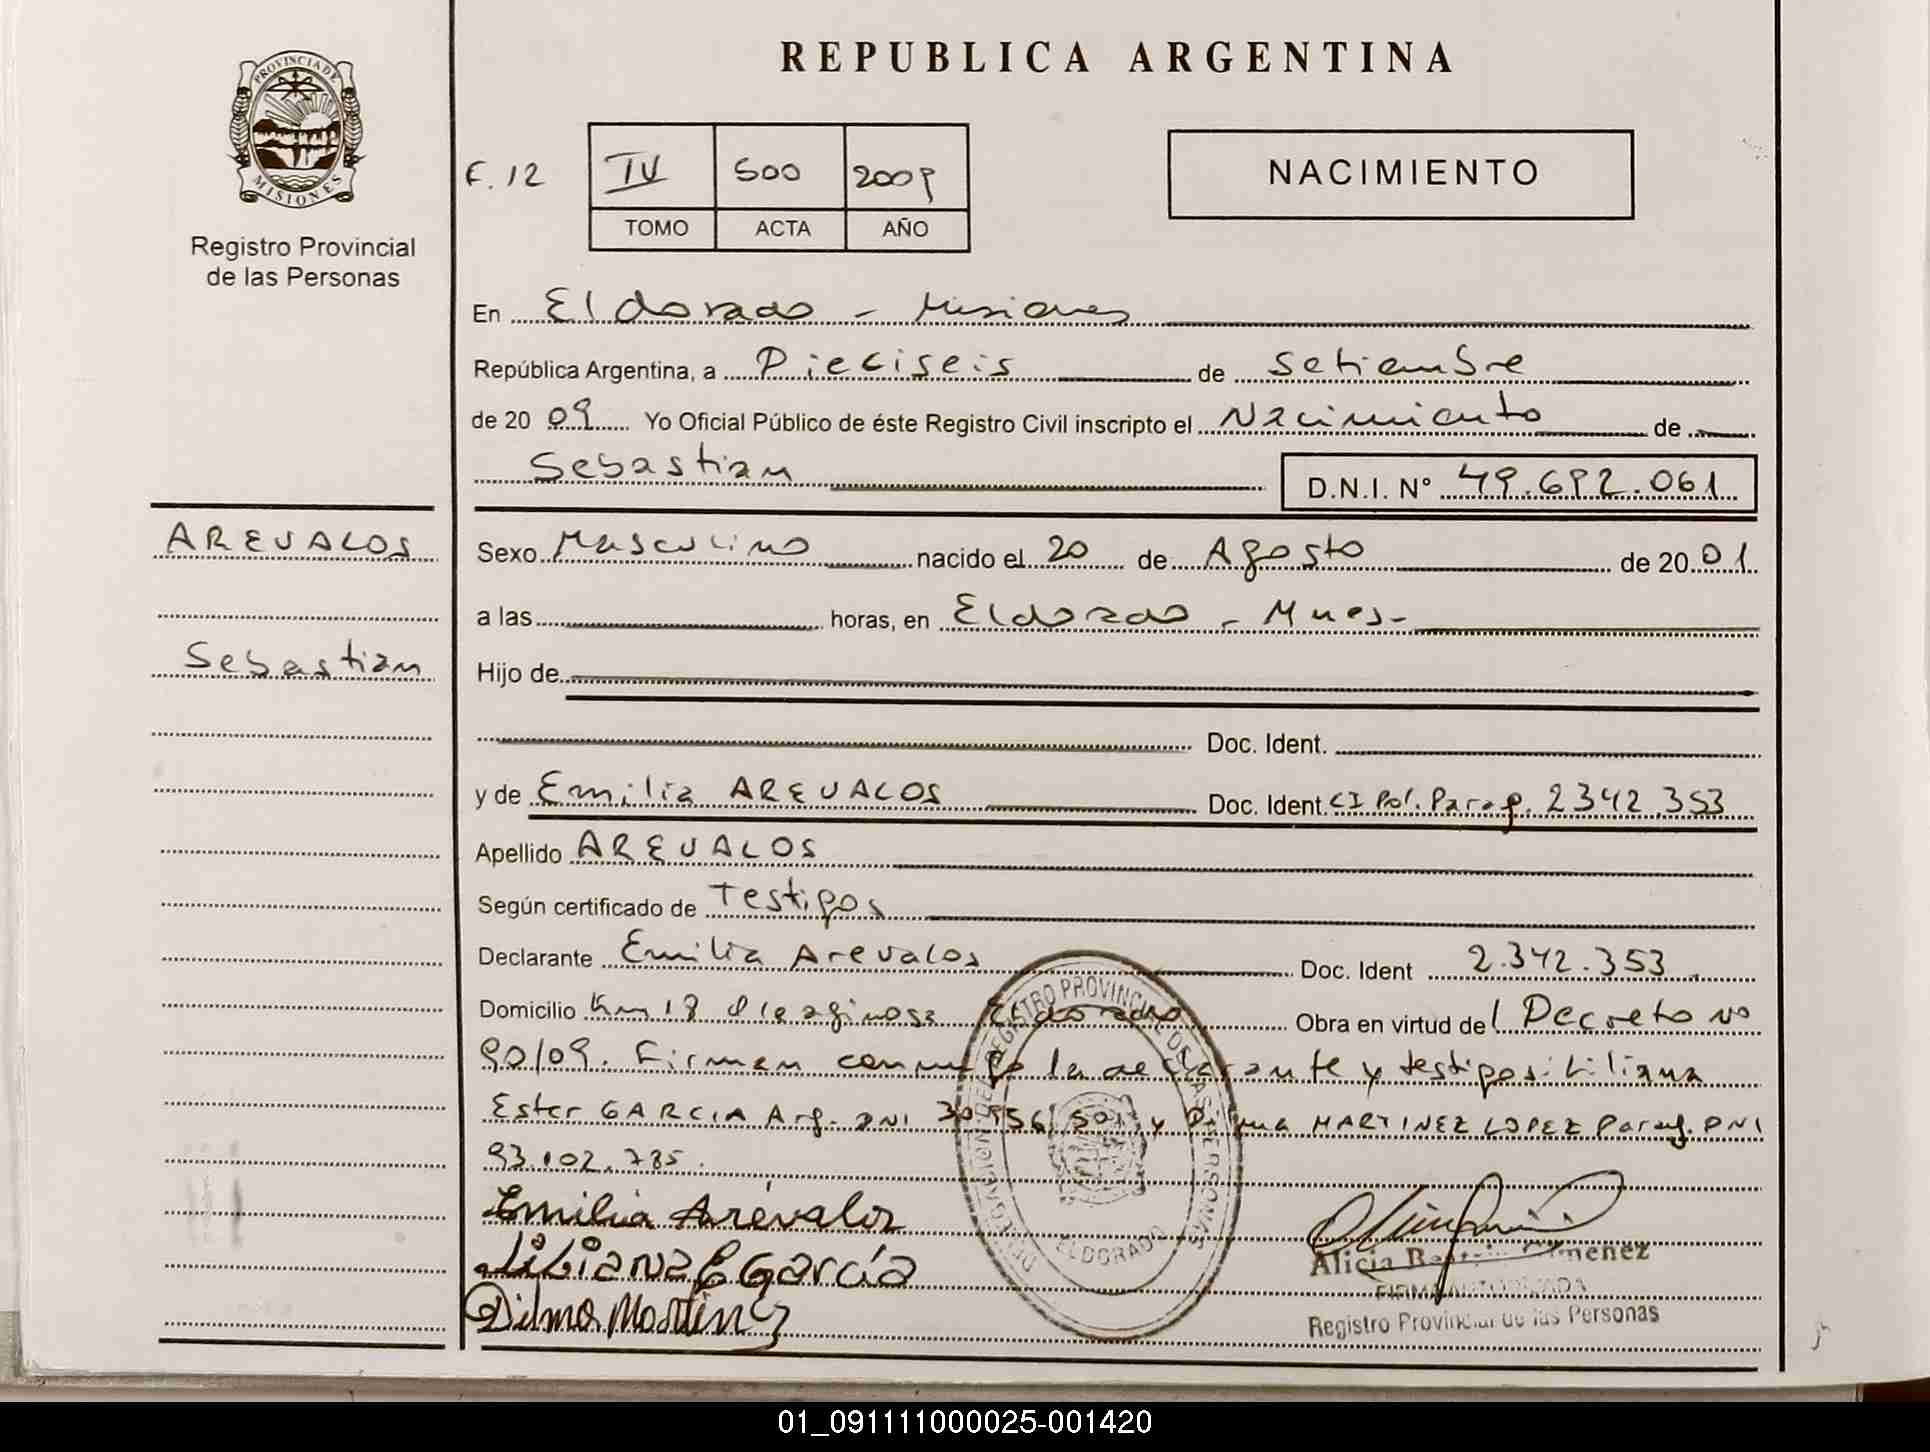 REPUBLICA ARGENTINA
PROVINCIA DE
MISIONES
Registro Provincial
de las Personas
F. 12
IV 500 2009
TOMO ACTA AÑO
NACIMIENTO
En Eldorado - Misiones
República Argentina, a Dieciseis de Setiembre
de 20 09 Yo Oficial Público de éste Registro Civil inscripto el Nacimiento de
Sebastian D.N.I. N° 49.692.061
AREVALOS
Sebastian
Sexo Masculino nacido el 20 de Agosto de 20 01
a las horas, en Eldorado - Mnes-
Hijo de
Doc. Ident.
y de Emilia AREVALOS Doc. Ident. CI Pol. Parag. 2342.353
Apellido AREVALOS
Según certificado de Testigos
Declarante Emilia Arevalos Doc. Ident 2.342.353
Domicilio Km 18 Oleaginosa Eldorado Obra en virtud del Decreto N°
90/09. Firman conmigo la declarante y testigos: Liliana
Ester GARCIA Arg. DNI y Dilma MARTINEZ LOPEZ Parag. DNI
93.102.785.
Emilia Arévalos
Liliana E García
Dilma Martinez
ELDORADO
Alicia Giménez
FIRMA AUTORIZADA
Registro Provincial de las Personas
01_091111000025-001420